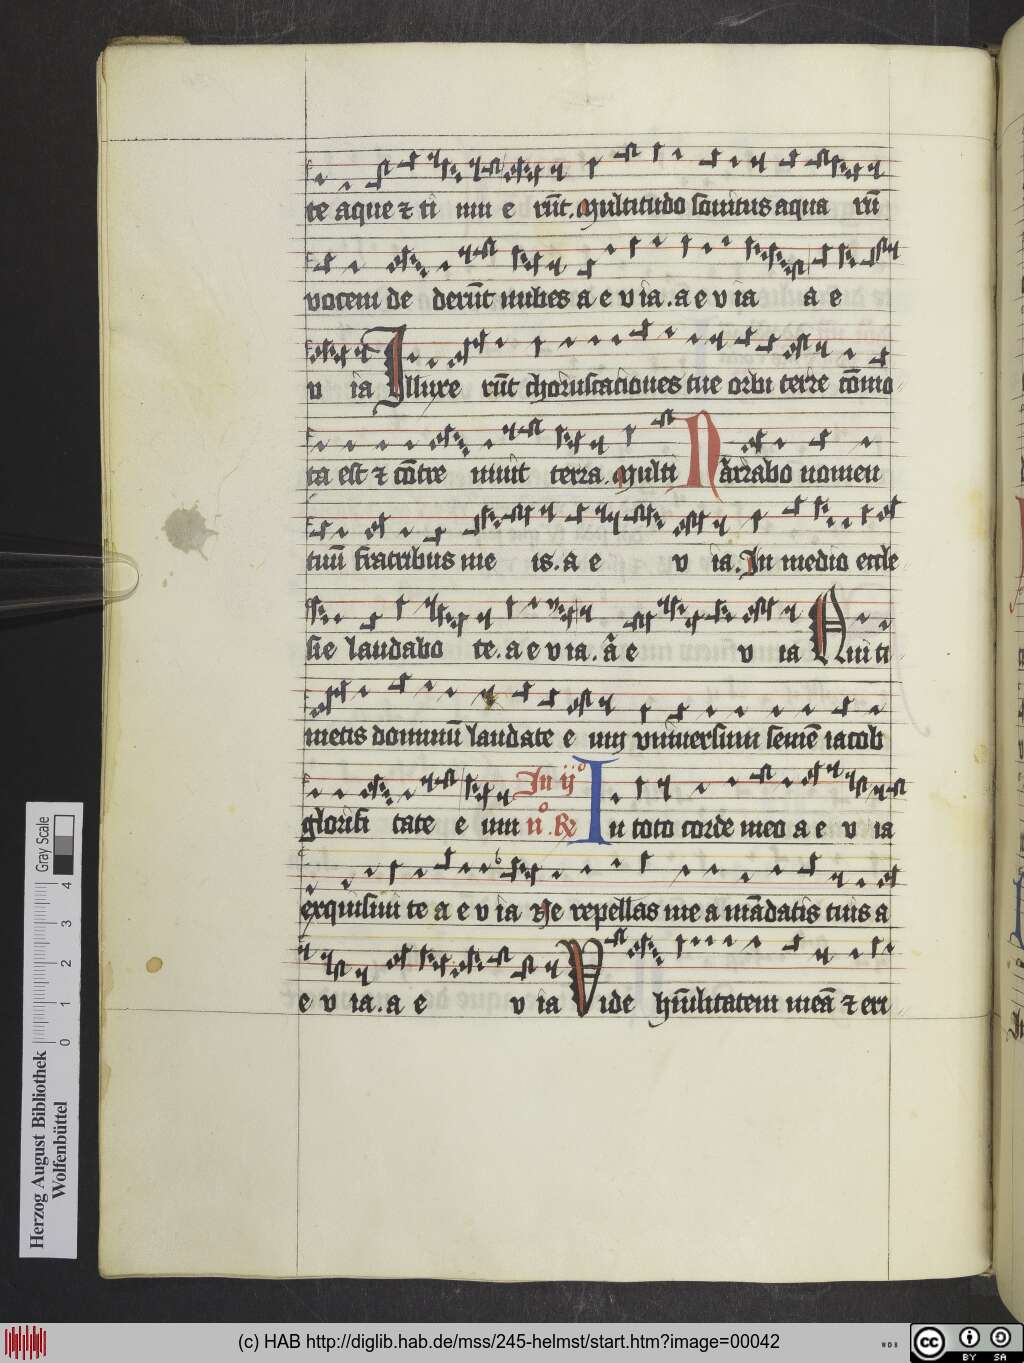 te aque ⁊ ti mu e rūt. Multitudo sonitus aqua rū
vocem de derūt nubes a e v ia. a e v ia a e
v ia Illuxe rūt choruscationes tue orbi terre cōmo
ta est ⁊ cōtre muit terra. Multi Narrabo nomen
tuū fratribus me is. a e v ia. In medio eccle
sie laudabo te. a e v ia. a e v ia Qui ti
metis dominū laudate e um vniuersum semē iacob
glorifi cate e um In ijº
nº. R In toto corde meo a e v ia
exquisiui te a e v ia Ne repellas me a mādatis tuis a
e v ia. a e v ia Vide hūilitatem meā ⁊ eri
Gray Scale
0 1 2 3 4
Herzog August Bibliothek
Wolfenbüttel
(c) HAB http://diglib.hab.de/mss/245-helmst/start.htm?image=00042
WDB
cc BY SA